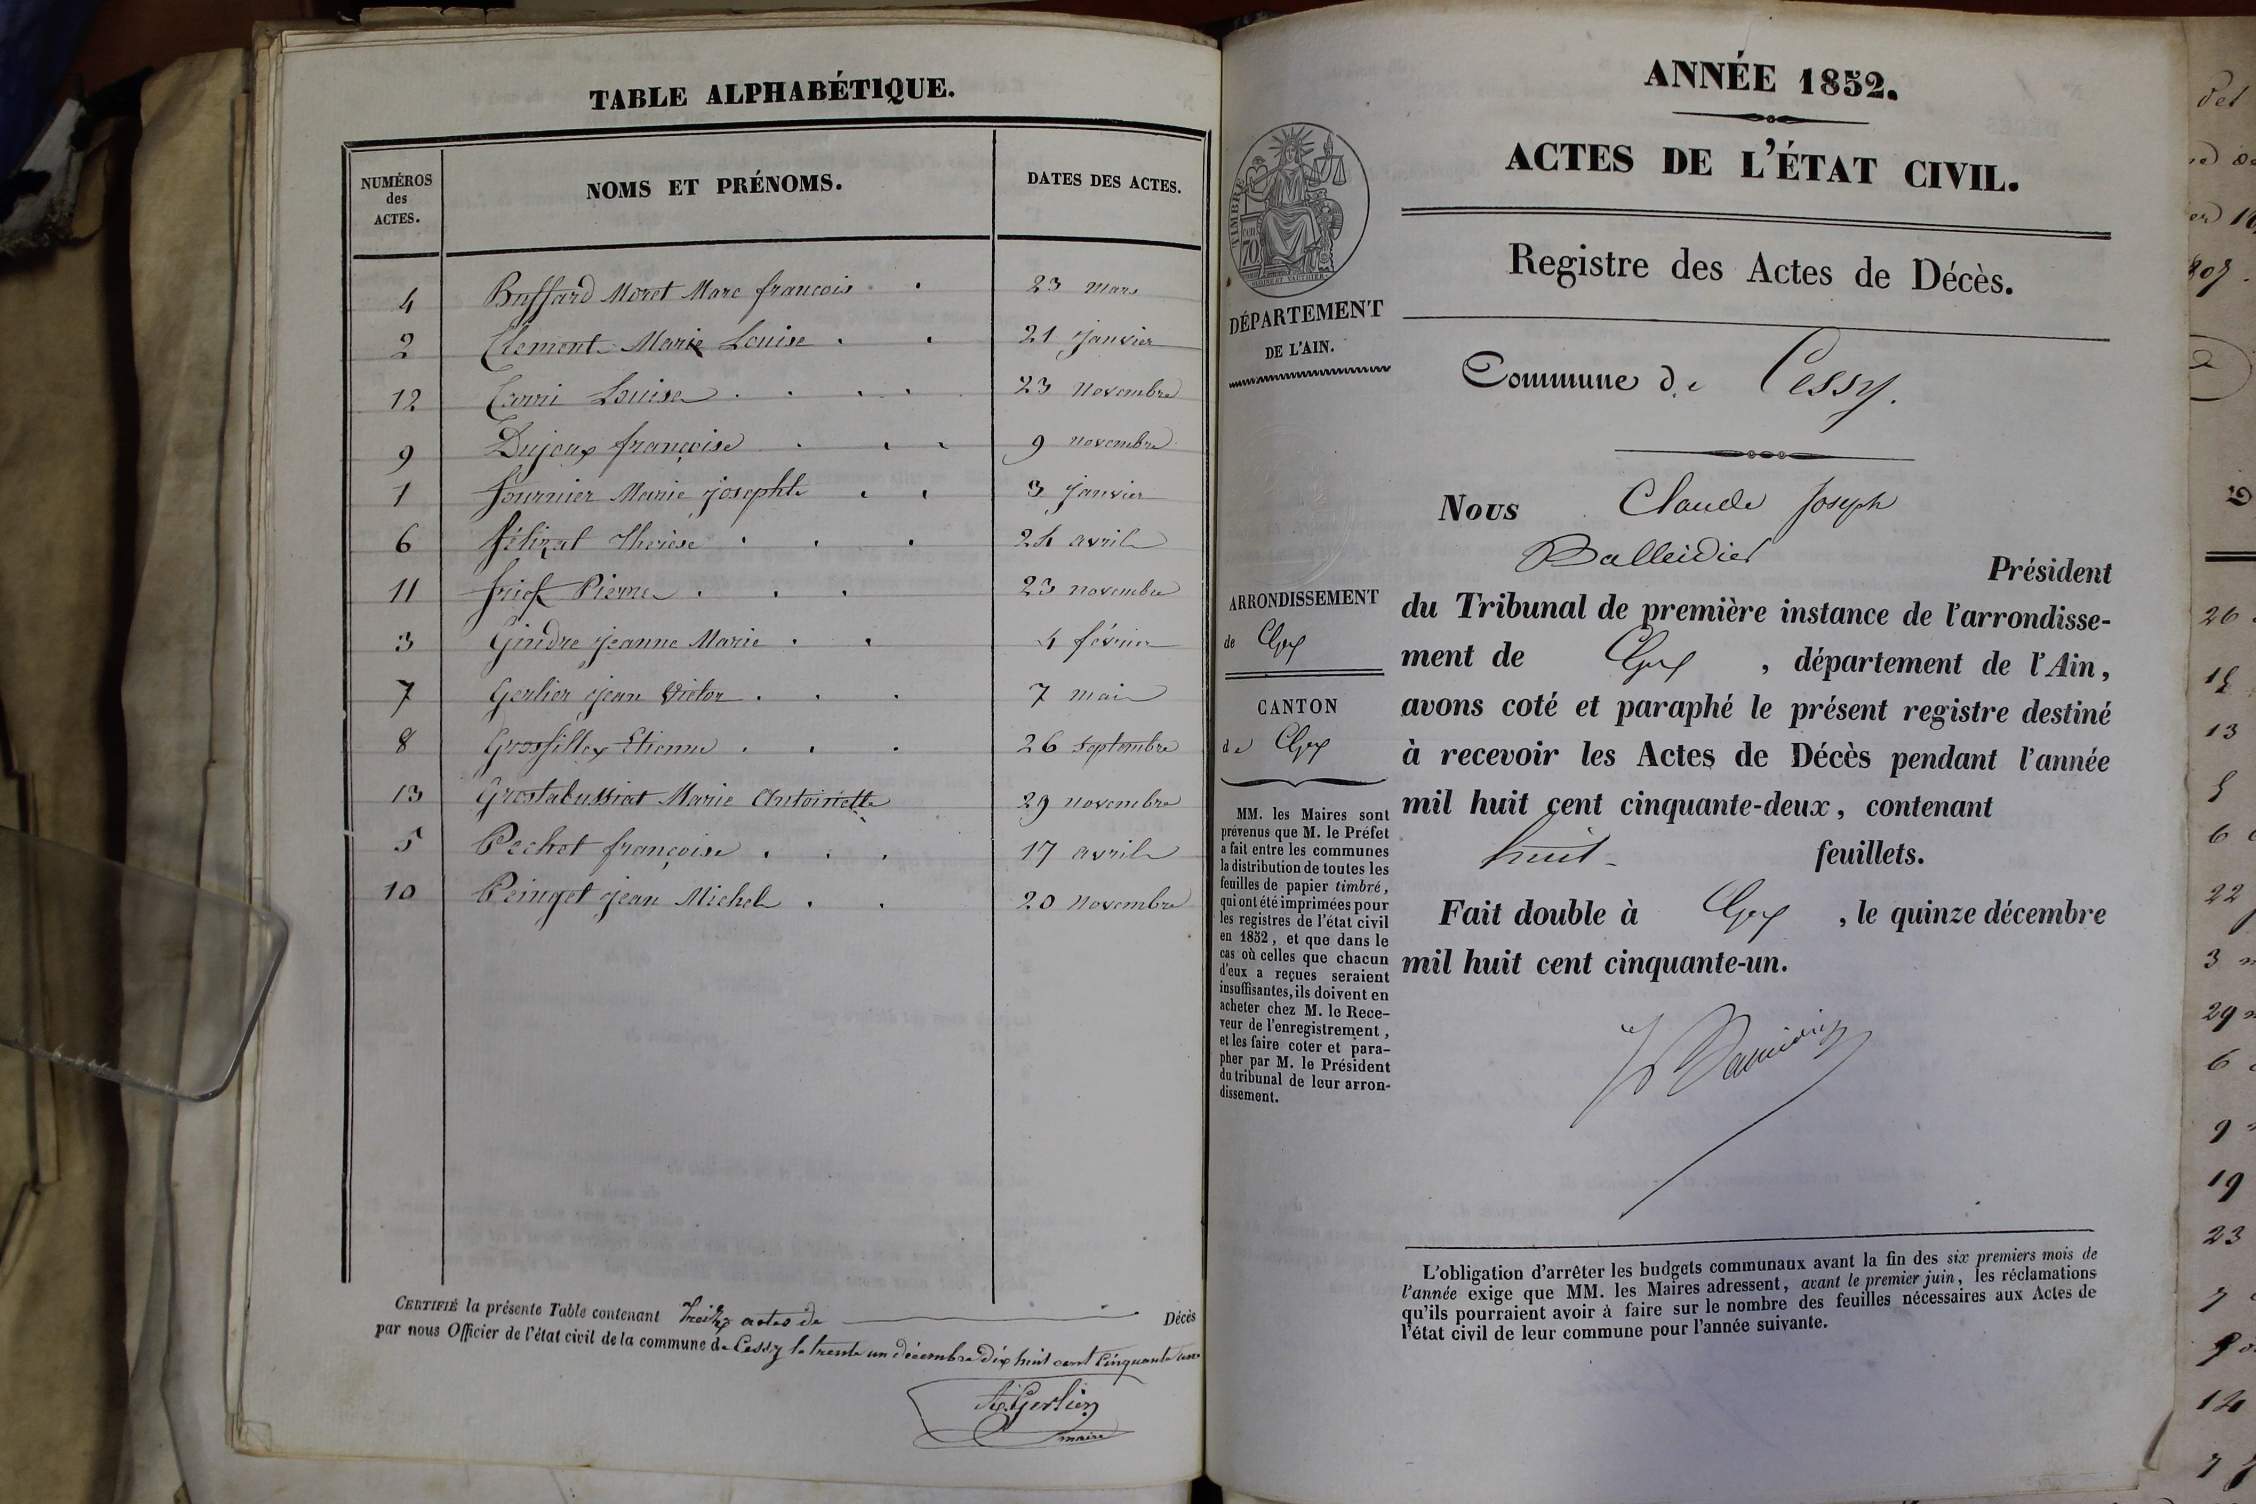 TABLE ALPHABÉTIQUE.
NUMÉROS des ACTES. NOMS ET PRÉNOMS. DATES DES ACTES.
4 Buffard Moret Marc françois 23 mars
2 Clement Marie Louise 21 janvier
12 Louise 23 novembre
9 Dujoux françoise 9 novembre
1 fournier Marie josephte 3 janvier
6 félizat Therese 24 avril
11 Pierre 23 novembre
3 Gindre jeanne Marie 4 février
7 Gerlier jean Victor 7 mai
8 Grossillex Etienne 26 septembre
13 Grostabussiat Marie Antoinette 29 novembre
5 Pechet françoise 17 avril
10 Peinget jean Michel 20 novembre
CERTIFIÉ la présente Table contenant Treize actes de Décès
par nous Officier de l'état civil de la commune de Cessy le trente un décembre dix huit cent cinquante un
Gerlier
maire
ANNÉE 1852.
ACTES DE L'ÉTAT CIVIL.
Registre des Actes de Décès.
TIMBRE
70
DÉPARTEMENT
DE L'AIN.
Commune de Cessy.
ARRONDISSEMENT
de Gex
CANTON
de Gex
MM. les Maires sont
prévenus que M. le Préfet
a fait entre les communes
la distribution de toutes les
feuilles de papier timbré,
qui ont été imprimées pour
les registres de l'état civil
en 1852, et que dans le
cas où celles que chacun
d'eux a reçues seraient
insuffisantes, ils doivent en
acheter chez M. le Rece-
veur de l'enregistrement,
et les faire coter et para-
pher par M. le Président
du tribunal de leur arron-
dissement.
Nous Claude Joseph
Balleidier
Président
du Tribunal de première instance de l'arrondisse-
ment de Gex, département de l'Ain,
avons coté et paraphé le présent registre destiné
à recevoir les Actes de Décès pendant l'année
mil huit cent cinquante-deux, contenant
huit feuillets.
Fait double à Gex, le quinze décembre
mil huit cent cinquante-un.
L'obligation d'arrêter les budgets communaux avant la fin des six premiers mois de
l'année exige que MM. les Maires adressent, avant le premier juin, les réclamations
qu'ils pourraient avoir à faire sur le nombre des feuilles nécessaires aux Actes de
l'état civil de leur commune pour l'année suivante.
26
13
22
3
29
6
9
19
23